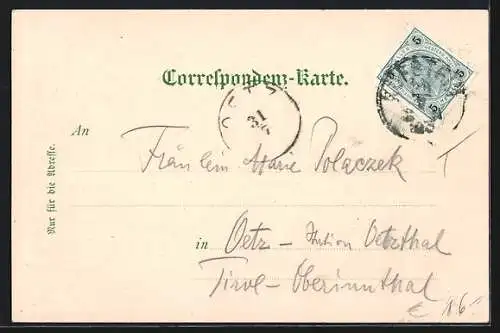 5
5
5
Correspondenz-Karte.
OETZ
31
An
Fräulein Marie Polaczek
Nur für die Adresse.
in Oetz – Station Oetzthal
Tirol – Oberinnthal